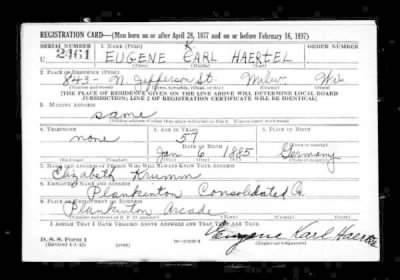 REGISTRATION CARD—(Men born on or after April 28, 1877 and on or before February 16, 1897)
SERIAL NUMBER 1. NAME (Print) ORDER NUMBER
U 2461 EUGENE CARL HAERTEL
K
(First) (Middle) (Last)
2. PLACE OF RESIDENCE (Print)
843 - N. Jefferson St. Milw Wis
[THE PLACE OF RESIDENCE GIVEN ON THE LINE ABOVE WILL DETERMINE LOCAL BOARD
JURISDICTION; LINE 2 OF REGISTRATION CERTIFICATE WILL BE IDENTICAL]
3. MAILING ADDRESS
same
4. TELEPHONE 5. AGE IN YEARS 6. PLACE OF BIRTH
none 57
DATE OF BIRTH
Jan 6 1885 Germany
7. NAME AND ADDRESS OF PERSON WHO WILL ALWAYS KNOW YOUR ADDRESS
Elizabeth Krumm
8. EMPLOYER'S NAME AND ADDRESS
Plankinton Consolidated Co.
9. PLACE OF EMPLOYMENT OR BUSINESS
Plankinton Arcade
I AFFIRM THAT I HAVE VERIFIED ABOVE ANSWERS AND THAT THEY ARE TRUE.
D. S. S. Form 1
(Revised 4-1-42)
Eugene Karl Haertel
(Registrant's signature)